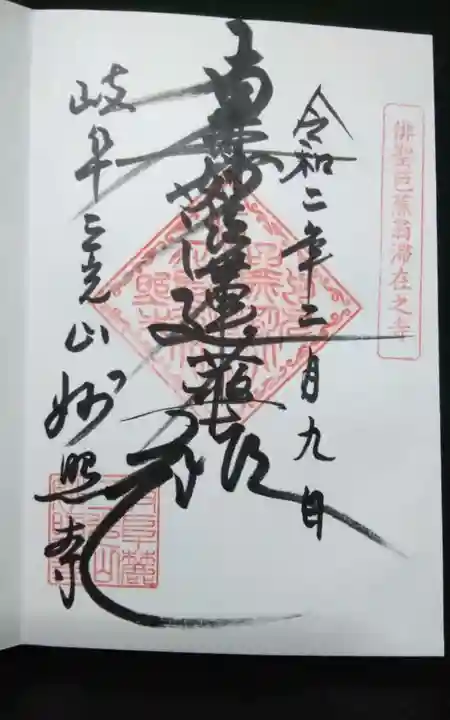 俳聖芭蕉翁滞在之寺
令和二年三月九日
南無妙法蓮華経
岐阜三光山妙照寺